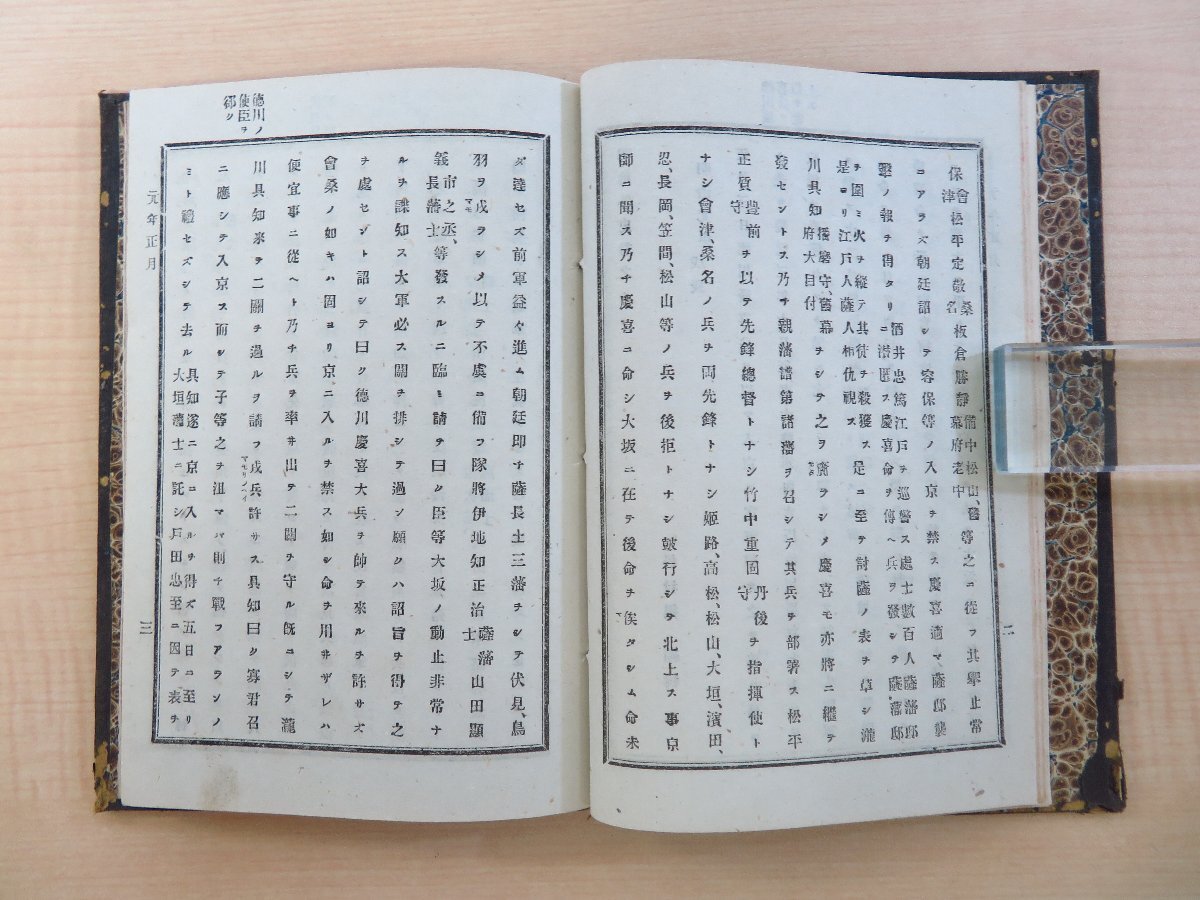 保會津松平定敬桑名板倉勝靜備中松山、舊幕府老中等之ニ從フ其擧止常
ニアラズ朝廷詔シテ容保等ノ入京ヲ禁ス慶喜適マ薩邸襲
擊ノ報ヲ得タリ酒井忠篤江戸ヲ巡警ス處士數百人薩藩邸ニ潜匿ス慶喜命ヲ傳ヘ兵ヲ發シテ薩藩邸
ヲ圍ミ火ヲ縱テ其徒ヲ殺獲ス是ニ至テ討薩ノ表ヲ草シ瀧是ヨリ江戸人薩人相仇視ス
川具知播磨守、舊幕府大目付ヲシテ之ヲ齎ラシメ慶喜モ亦將ニ繼テ
發セントス乃チ親藩譜第諸藩ヲ召シテ其兵ヲ部署ス松平
正質豊前守ヲ以テ先鋒總督トナシ竹中重固丹後守ヲ指揮使ト
ナシ會津、桑名ノ兵ヲ両先鋒トナシ姫路、高松、松山、大垣、濱田、
忍、長岡、笠間、松山等ノ兵ヲ後拒トナシ皷行シテ北上ス事京
師ニ聞ス乃チ慶喜ニ命シ大坂ニ在テ後命ヲ俟タシム命未
二
德川ノ使臣ヲ郤ク
ダ達セズ前軍益々進ム朝廷即チ薩長土三藩ヲシテ伏見、鳥
羽ヲ戍ラシメ以テ不虞ニ備フ隊將伊地知正治薩藩士山田顯
義市之丞、長藩士等發スルニ臨ミ請テ曰ク臣等大坂ノ動止非常ナ
ルヲ諜知ス大軍必ス關ヲ排シテ過ン願クハ詔旨ヲ得テ之
ヲ處セント詔シテ曰ク德川慶喜大兵ヲ帥テ來ルヲ許サズ
會桑ノ如キハ固ヨリ京ニ入ルヲ禁ス如シ命ヲ用井ザレハ
便宜事ニ從ヘト乃チ兵ヲ率井出テ二關ヲ守ル既ニシテ瀧
川具知來テ二關ヲ過ルヲ請フ戍兵許サス具知曰ク寡君召
ニ應シテ入京ス而シテ子等之ヲ沮マバ則チ戰フアランノ
ミト禮セズシテ去ル具知遂ニ京ニ入ルヲ得ズ五日ニ至リ大垣藩士ニ託シ戸田忠至ニ因テ表ヲ
元年正月
三